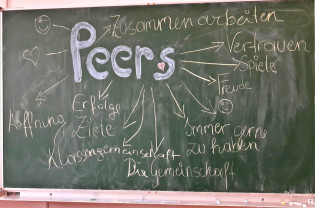 Zusammenarbeiten
Peers
Vertrauen
Spiele
Freude
Hoffnung
Erfolge
Ziele
Klassengemeinschaft
Die Gemeinschaft
Immer gern
zu haben